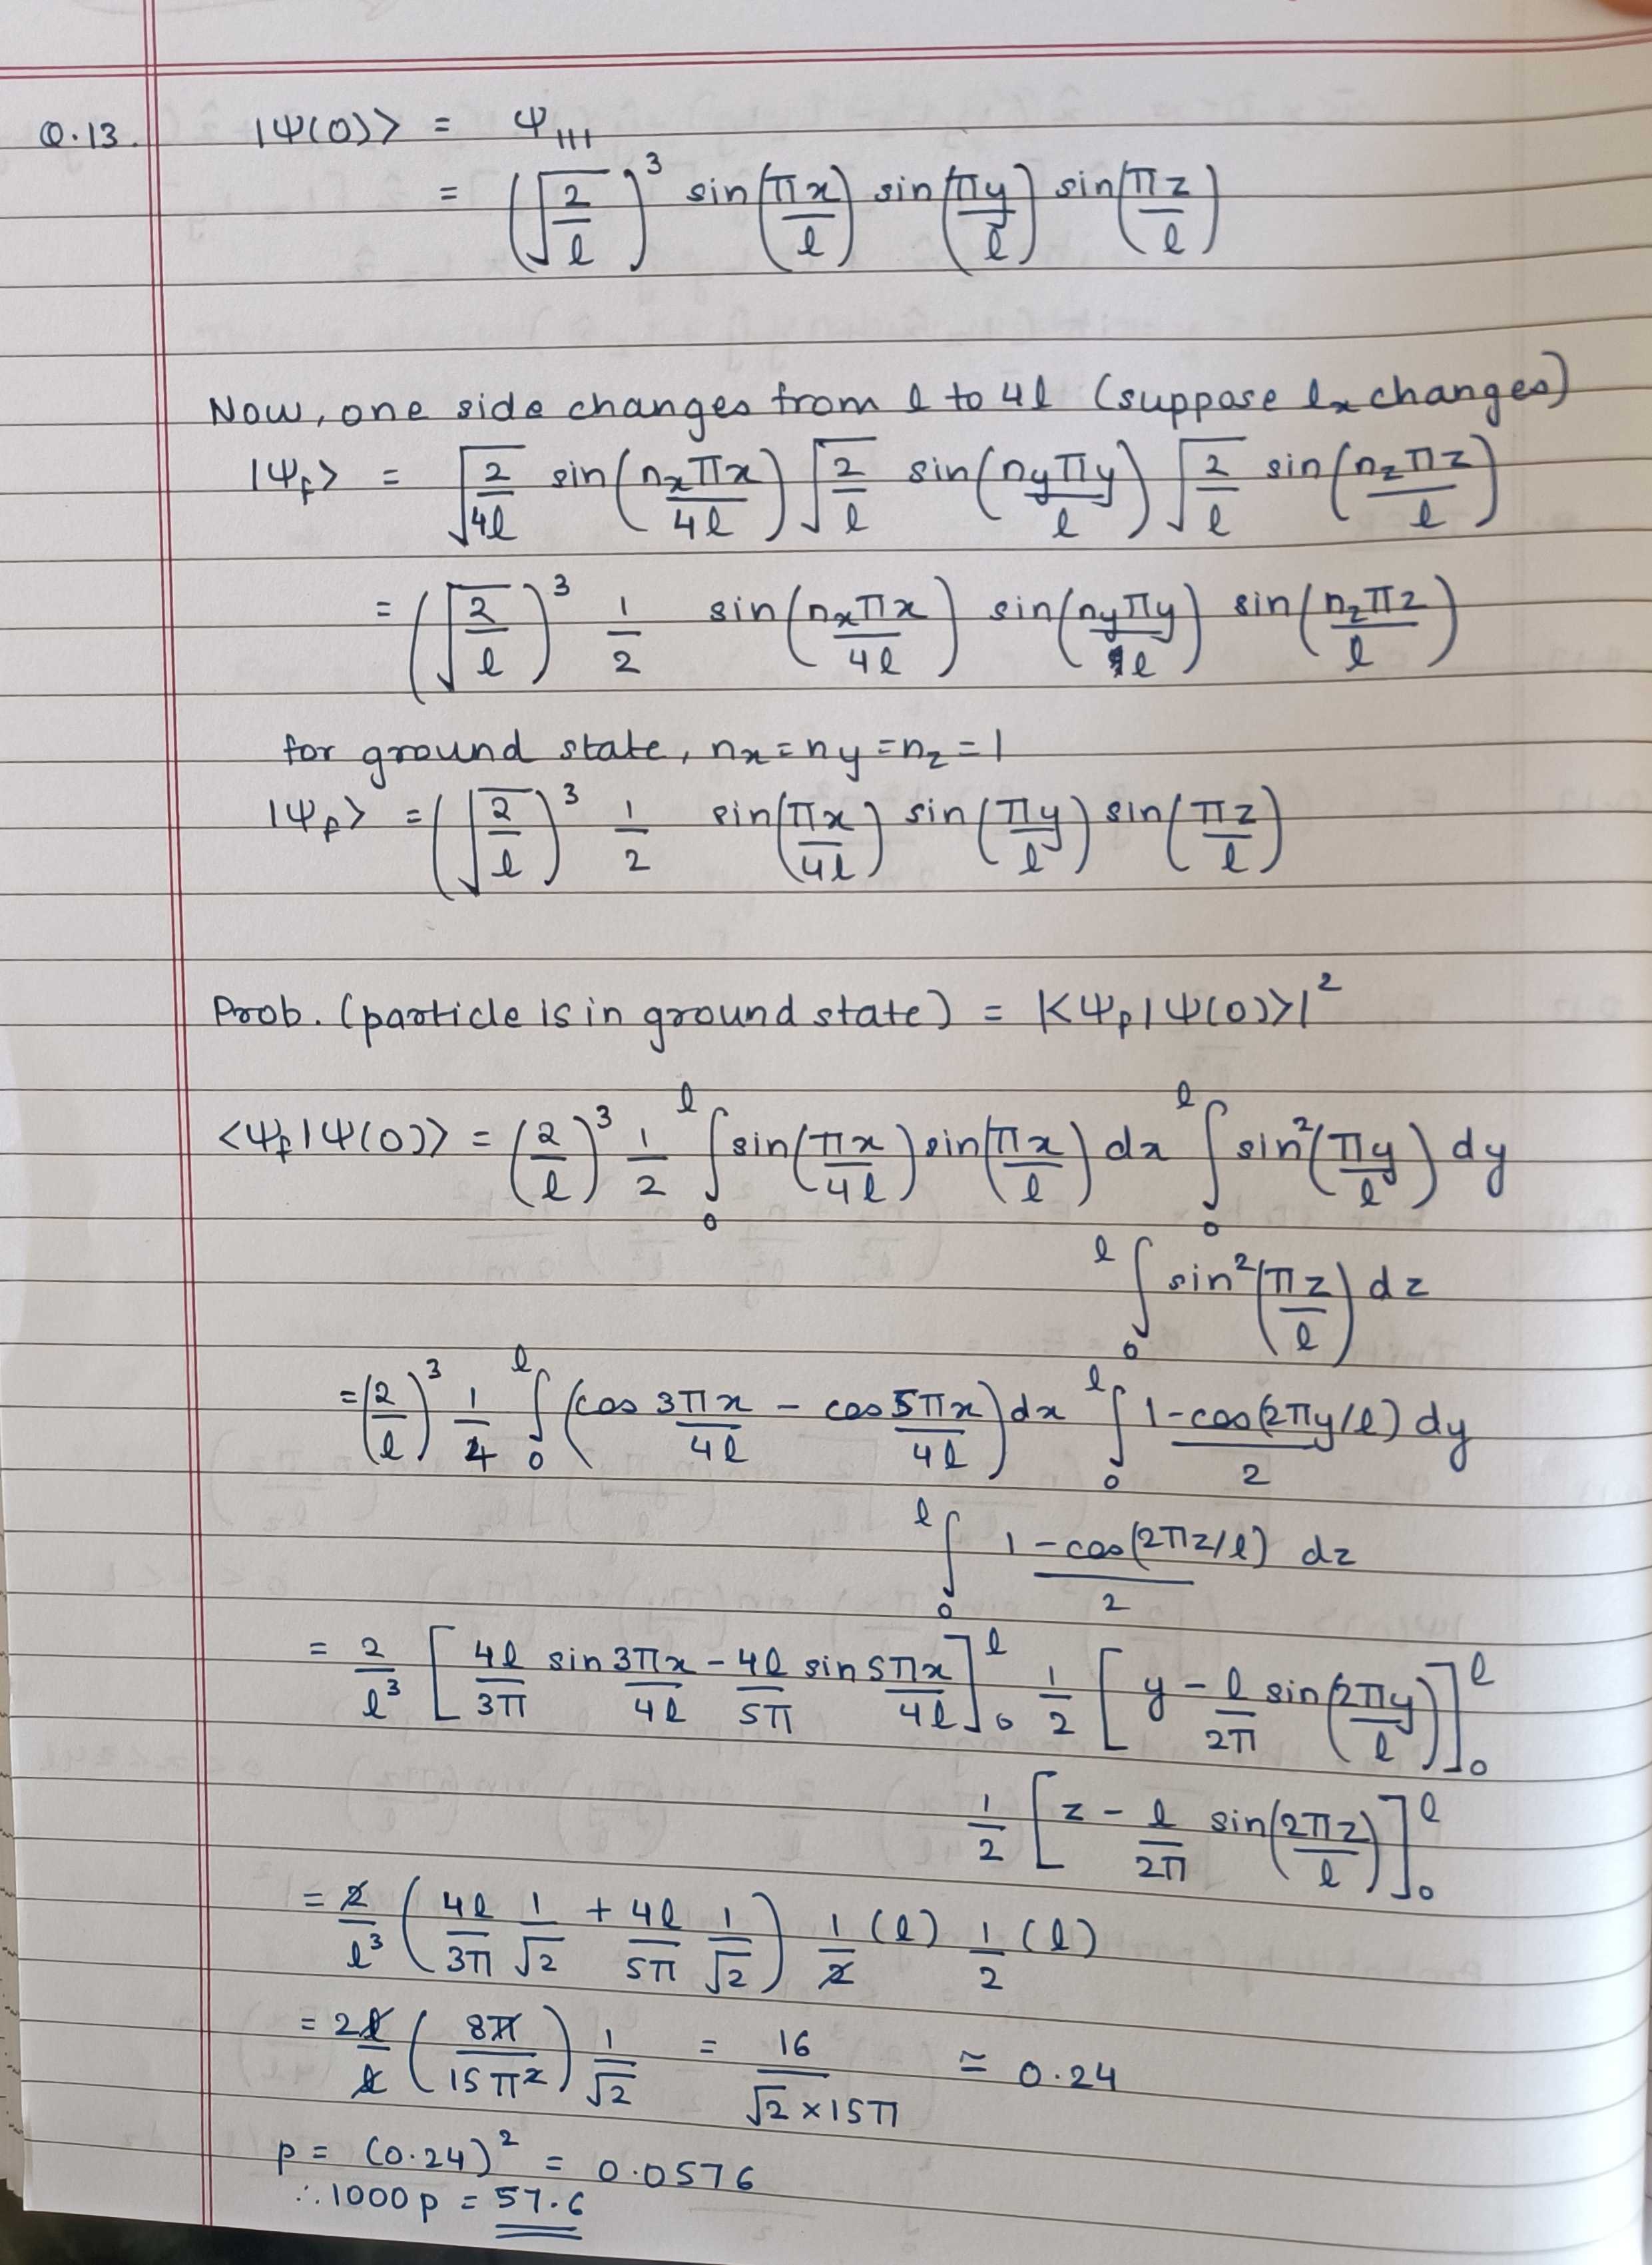 Q.13. |Ψ(0)⟩ = Ψ₁₁₁
= (√(2/l))³ sin(πx/l) sin(πy/l) sin(πz/l)
Now, one side changes from l to 4l (suppose lₓ changes)
|Ψf⟩ = √(2/4l) sin(nₓπx/4l) √(2/l) sin(n_yπy/l) √(2/l) sin(n_zπz/l)
= (√(2/l))³ 1/2 sin(nₓπx/4l) sin(n_yπy/l) sin(n_zπz/l)
for ground state, nₓ = n_y = n_z = 1
|Ψf⟩ = (√(2/l))³ 1/2 sin(πx/4l) sin(πy/l) sin(πz/l)
Prob. (particle is in ground state) = |⟨Ψf|Ψ(0)⟩|²
⟨Ψf|Ψ(0)⟩ = (2/l)³ 1/2 ∫₀ˡ sin(πx/4l) sin(πx/l) dx ∫₀ˡ sin²(πy/l) dy
∫₀ˡ sin²(πz/l) dz
= (2/l)³ 1/4 ∫₀ˡ (cos 3πx/4l - cos 5πx/4l) dx ∫₀ˡ 1-cos(2πy/l)/2 dy
∫₀ˡ 1-cos(2πz/l)/2 dz
= 2/l³ [4l/3π sin 3πx/4l - 4l/5π sin 5πx/4l]₀ˡ 1/2 [y - l/2π sin(2πy/l)]₀ˡ
1/2 [z - l/2π sin(2πz/l)]₀ˡ
= 2/l³ (4l/3π 1/√2 + 4l/5π 1/√2) 1/2 (l) 1/2 (l)
= 2l/l (8π/15π²) 1/√2 = 16/(√2×15π) ≃ 0.24
p = (0.24)² = 0.0576
∴ 1000p = 57.6